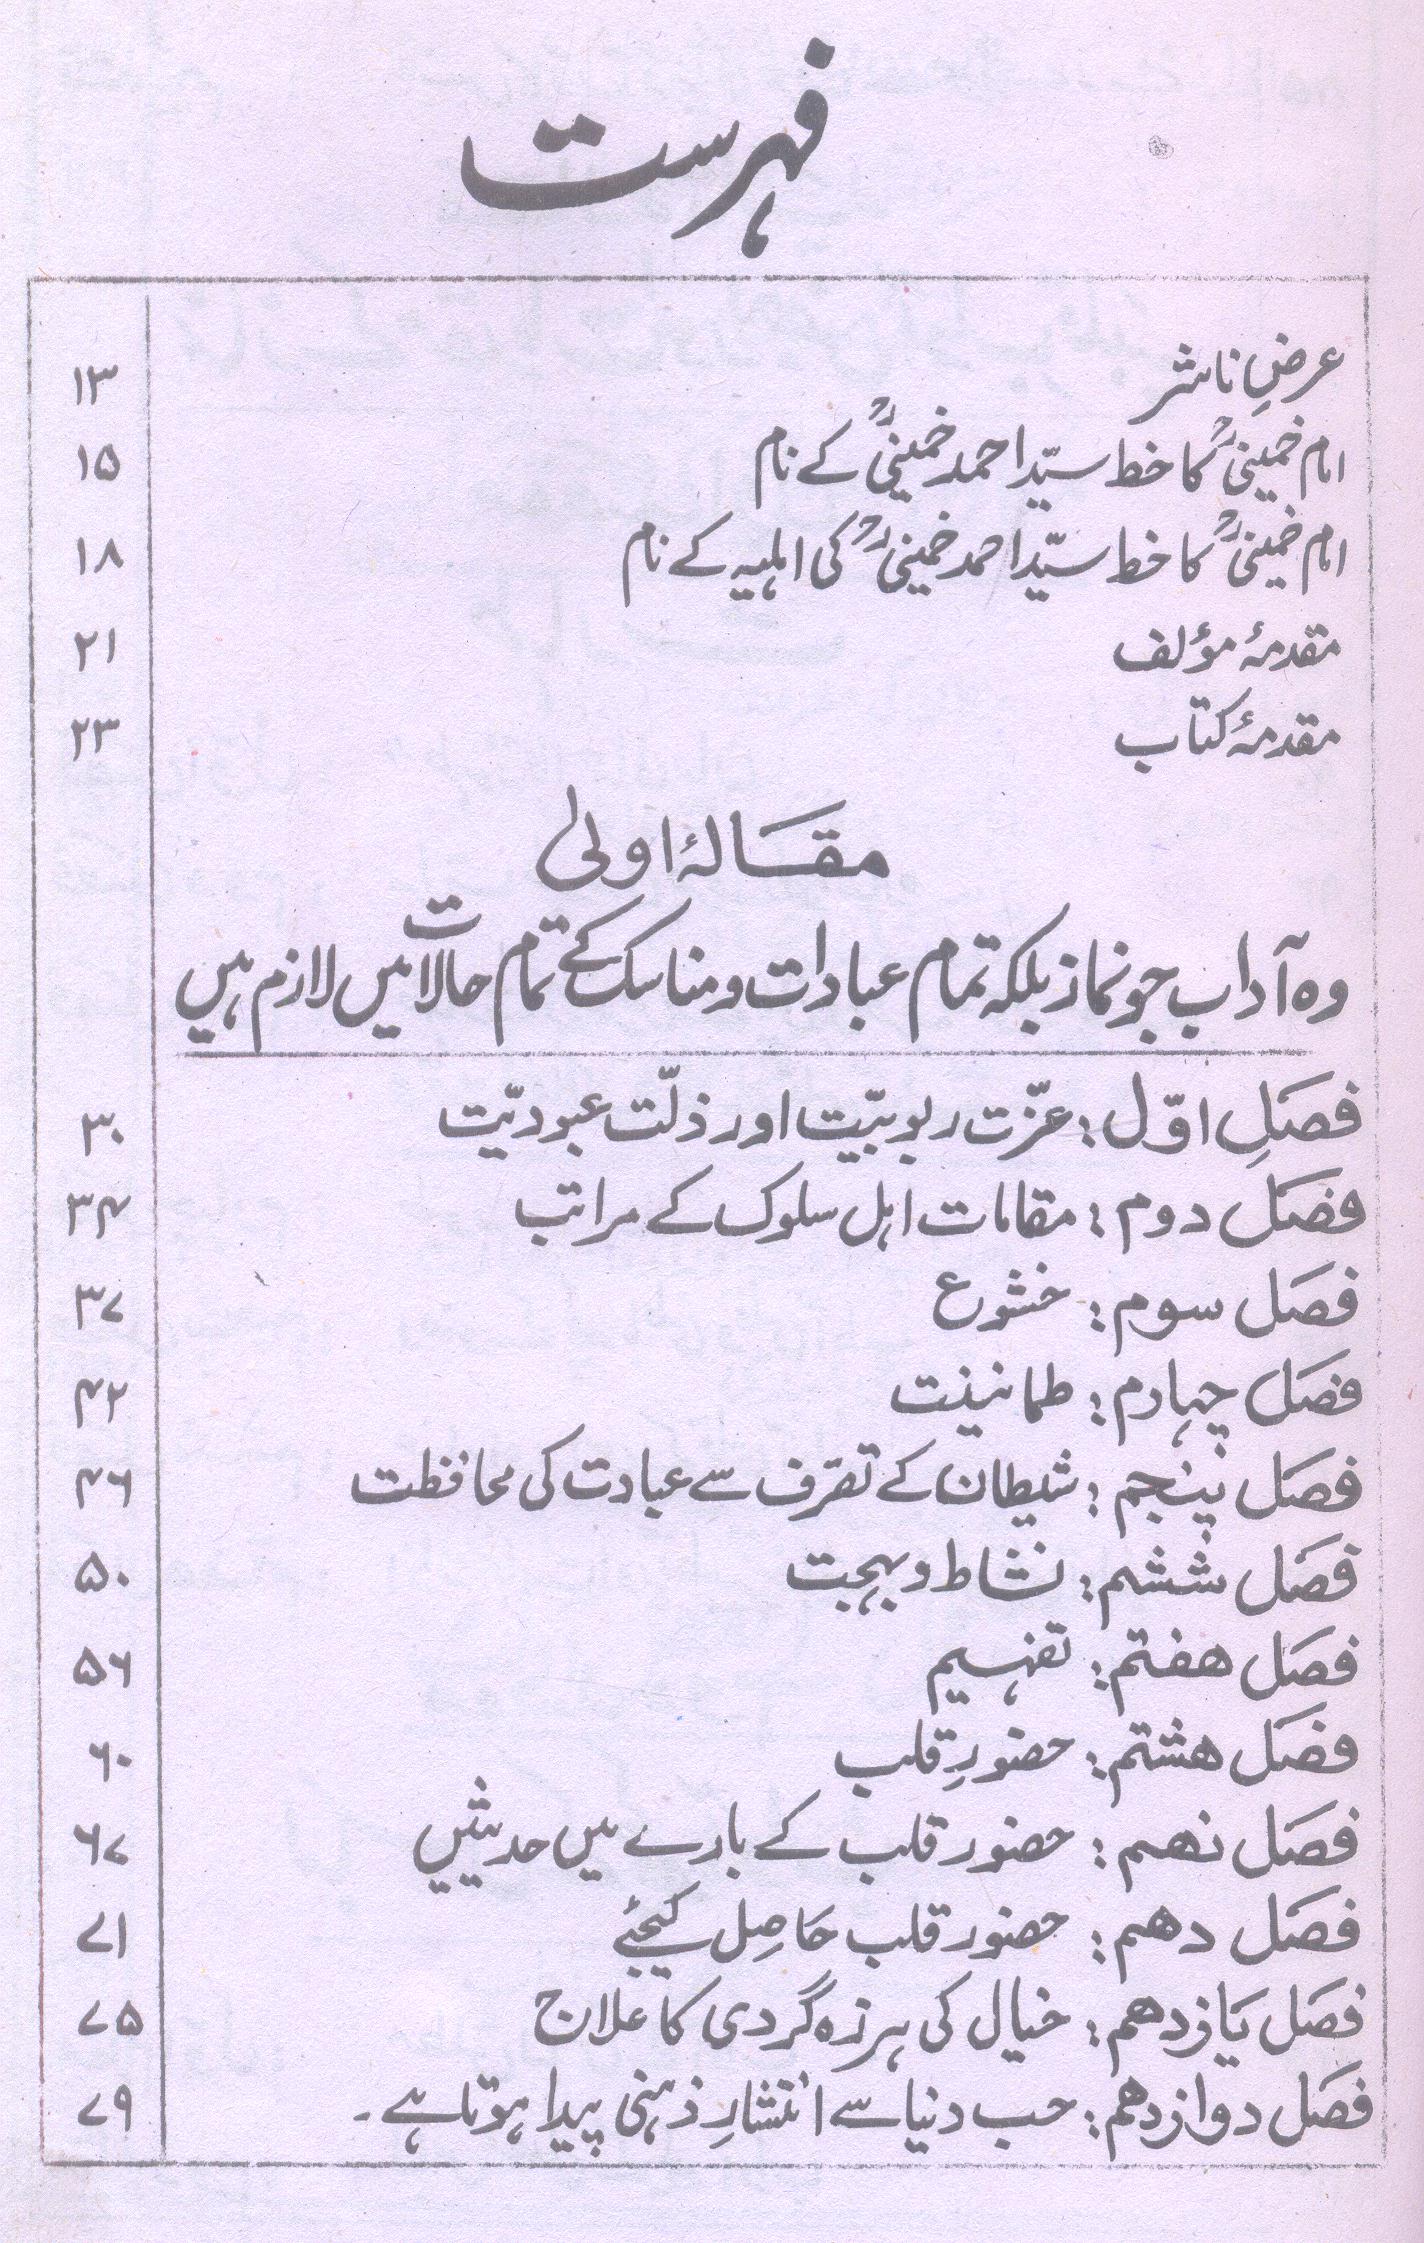 فہرست
عرضِ ناشر ۱۳
امام خمینیؒ کا خط سیّد احمد خمینیؒ کے نام ۱۵
امام خمینیؒ کا خط سیّد احمد خمینیؒ کی اہلیہ کے نام ۱۸
مقدمۂ مؤلف ۲۱
مقدمۂ کتاب ۲۳
مقالۂ اولیٰ
وہ آداب جو نماز بلکہ تمام عبادات و مناسک کے تمام حالات میں لازم ہیں
فصلِ اوّل : عزّت ربوبیّت اور ذلّت عبودیّت ۳۰
فصل دوم : مقامات اہل سلوک کے مراتب ۳۴
فصل سوم : خشوع ۳۷
فصل چہارم : طمانینت ۴۲
فصل پنجم : شیطان کے تصرف سے عبادت کی محافظت ۴۶
فصل ششم : نشاط و بہجت ۵۰
فصل ھفتم : تفہیم ۵۶
فصل ھشتم : حضورِ قلب ۶۰
فصل نھم : حضور قلب کے بارے میں حدیثیں ۶۷
فصل دھم : حضور قلب حاصِل کیجئے ۷۱
فصل یازدھم : خیال کی ہرزہ گردی کا علاج ۷۵
فصل دوازدھم : حب دنیا سے انتشارِ ذہنی پیدا ہوتا ہے۔ ۷۹